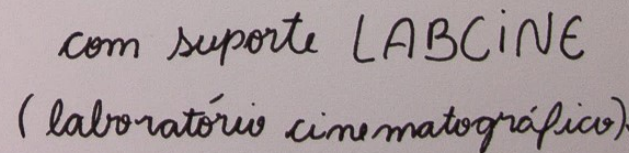 com suporte LABCiNE
(laboratório cinematográfico).